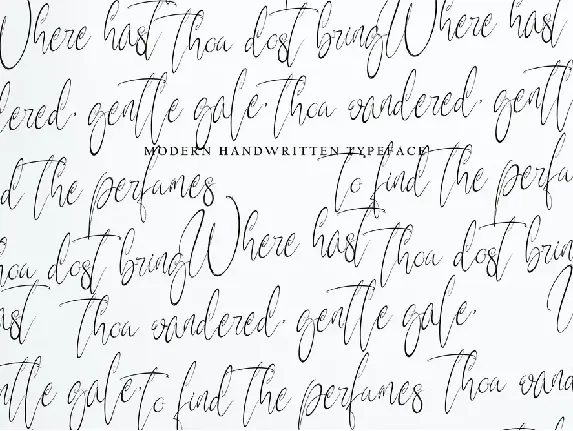 Where hast thoa dost bring Where hast
dered. gentle gale. thoa wandered. gentl
MODERN HANDWRITTEN TYPEFACE
d the perfames to find the perfa
hoa dost bring Where hast thoa dost brin
ast thoa wandered. gentle gale. W
ntle gale to find the perfames thoa wand